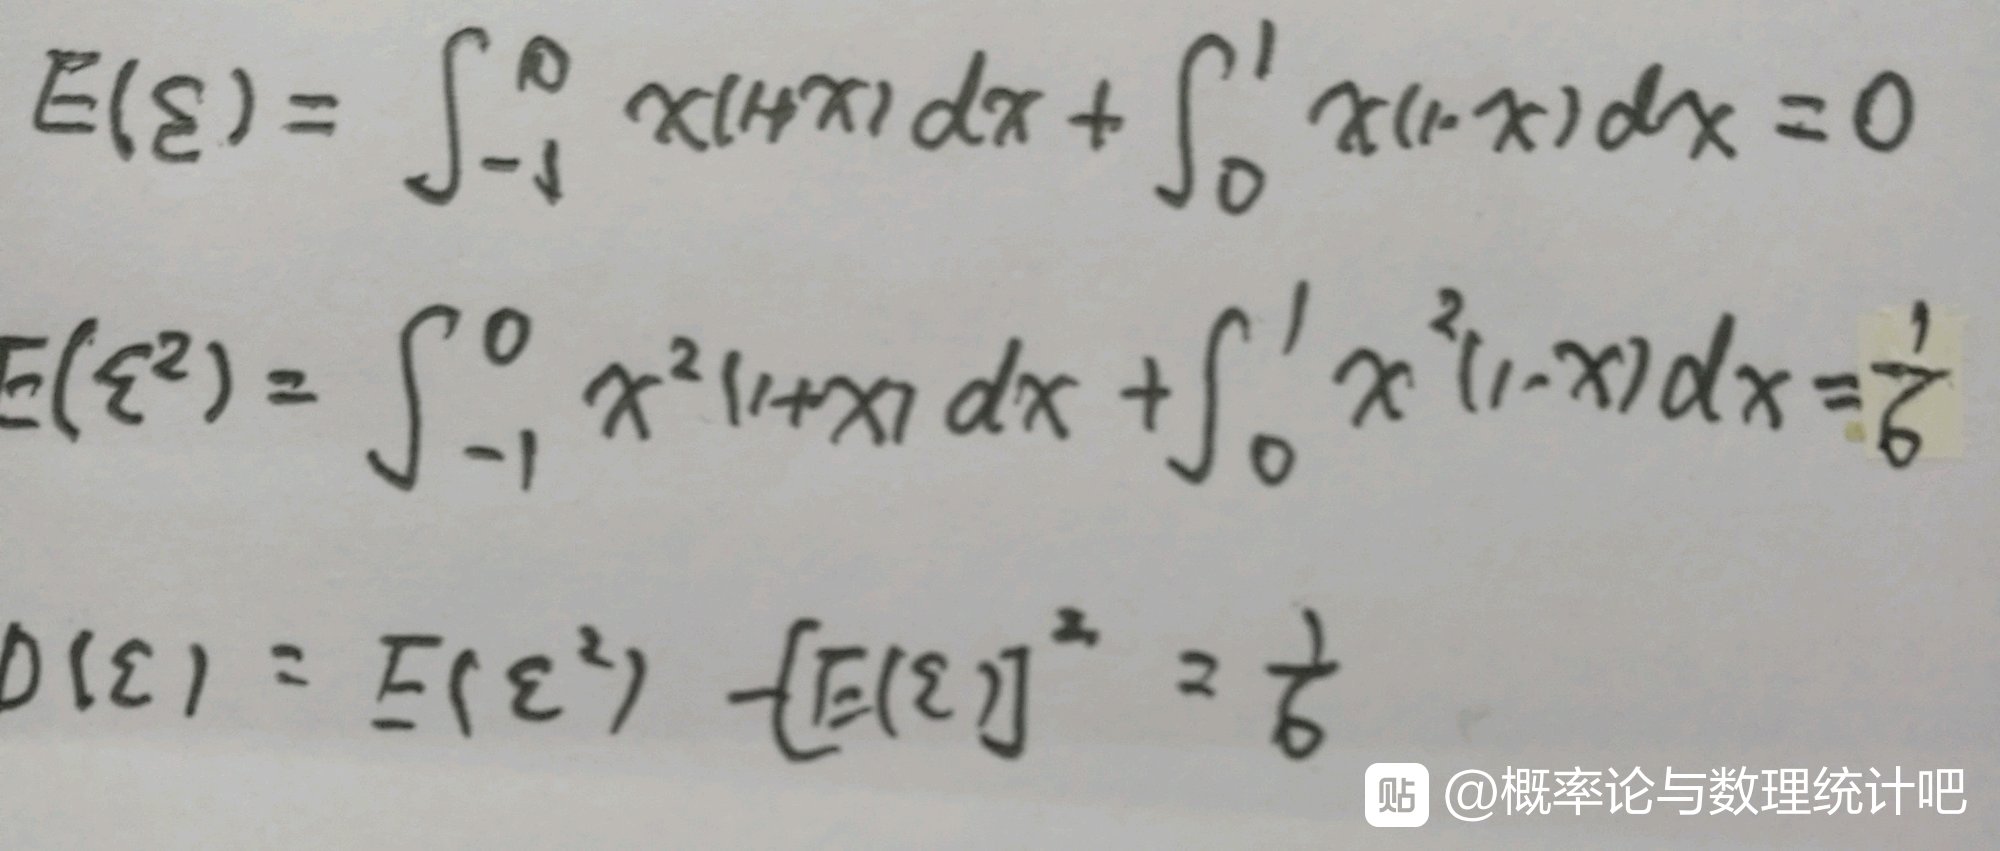 E(ξ) = ∫_{-1}^{0} x(1+x) dx + ∫_{0}^{1} x(1-x) dx = 0
E(ξ²) = ∫_{-1}^{0} x²(1+x) dx + ∫_{0}^{1} x²(1-x) dx = 1/6
D(ξ) = E(ξ²) - [E(ξ)]² = 1/6
贴 @概率论与数理统计吧